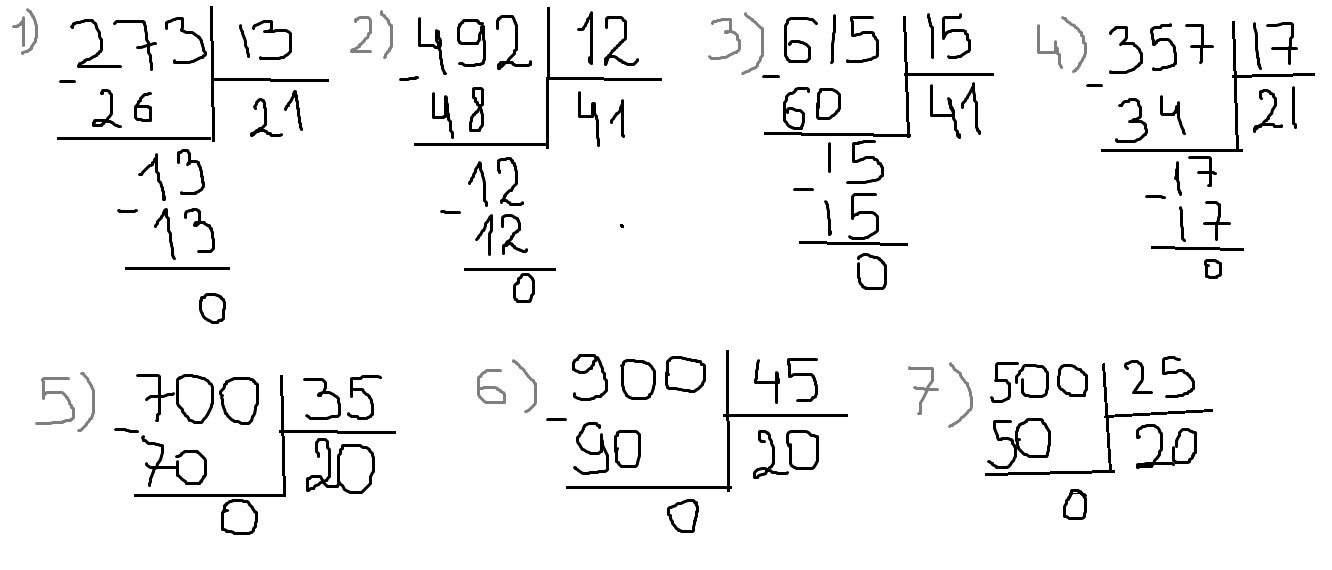 1) 273 13 2) 492 12 3) 615 15 4) 357 17
- 26 21 - 48 41 - 60 41 - 34 21
13 12 15 17
- 13 - 12 - 15 - 17
0 0 0 0
5) 700 35 6) 900 45 7) 500 25
- 70 20 - 90 20 50 20
0 0 0